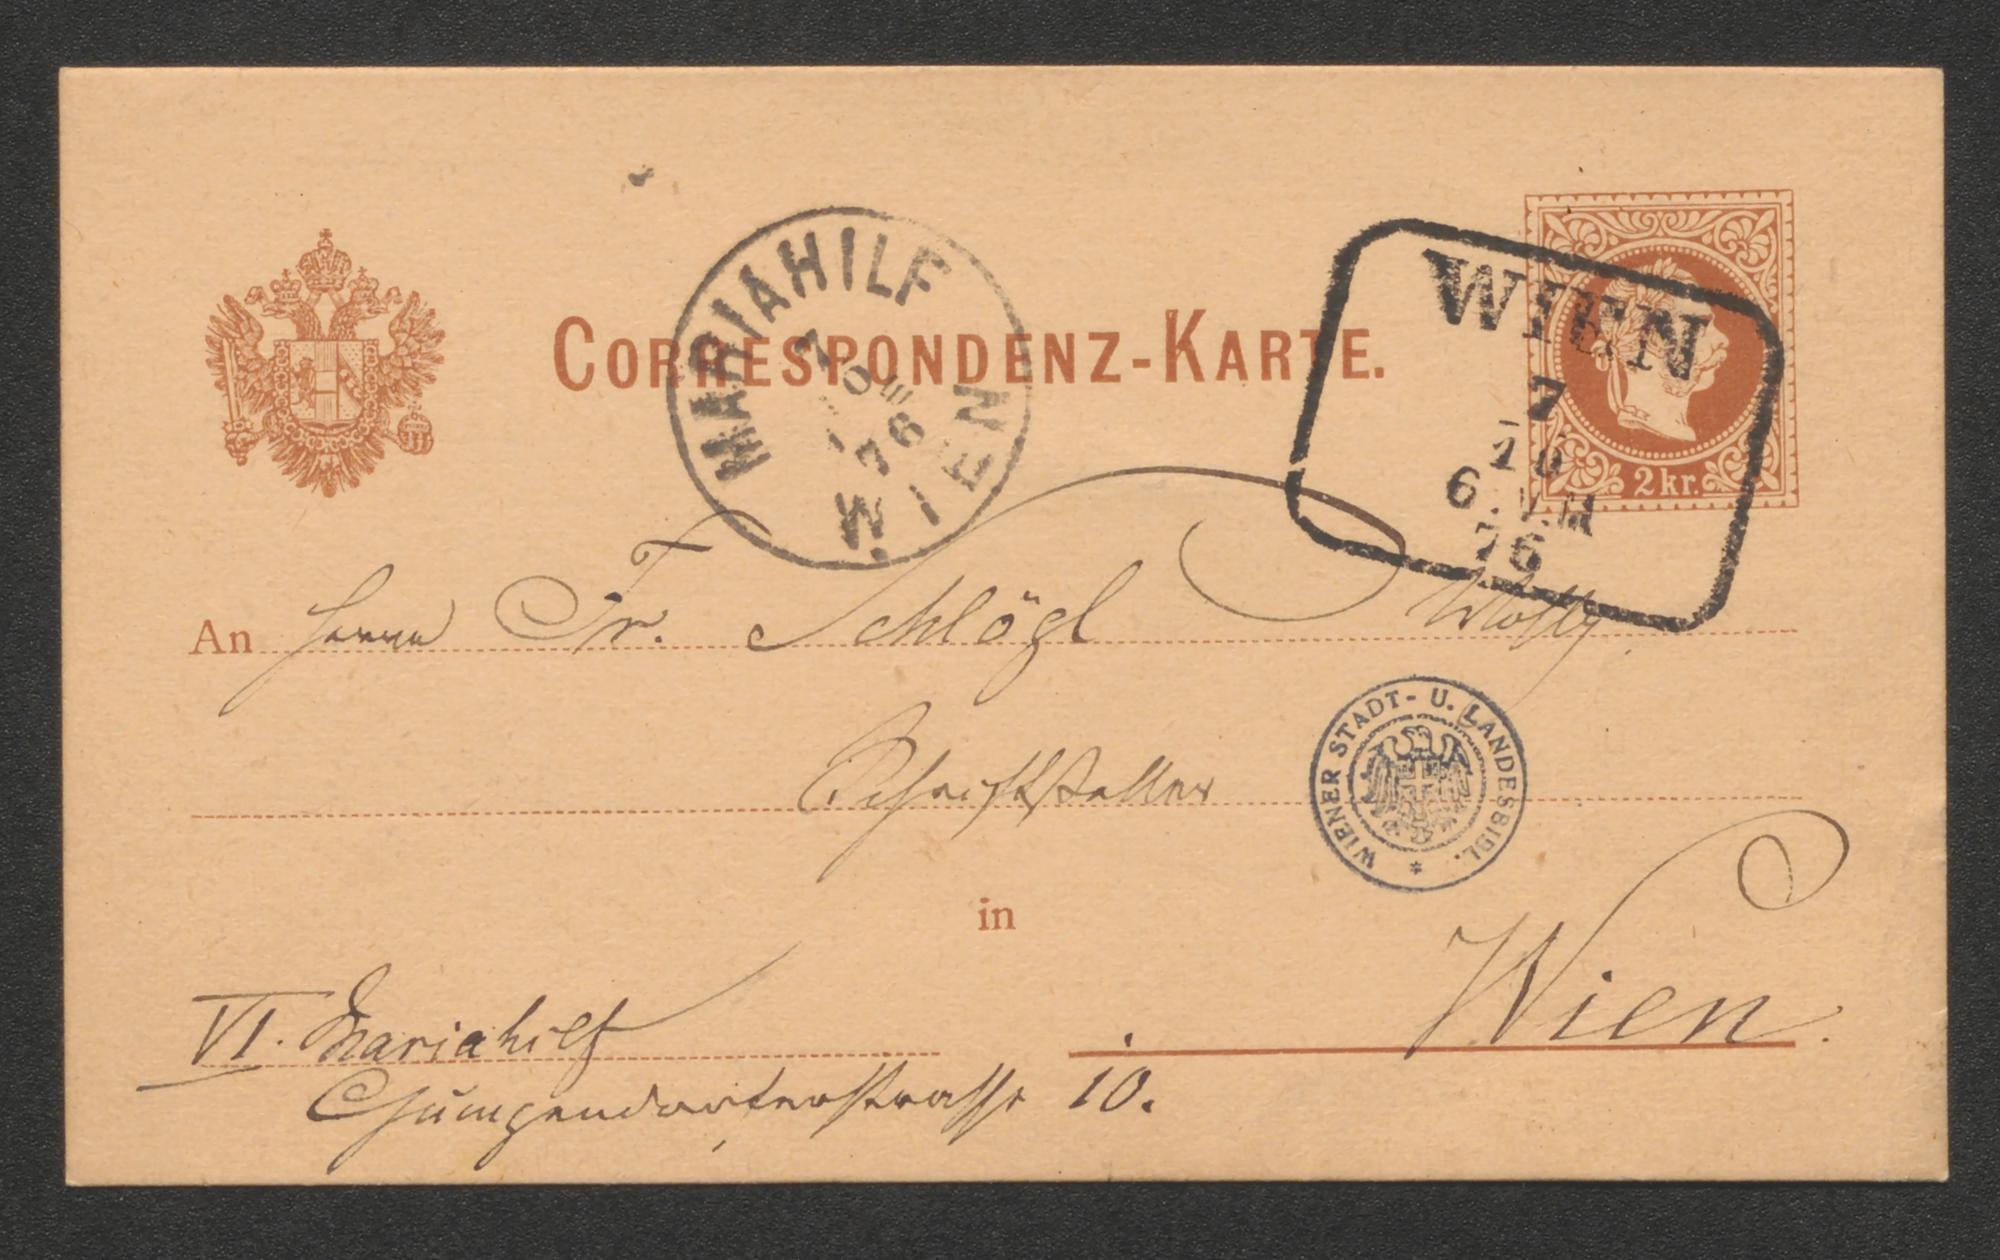 CORRESPONDENZ-KARTE.
MARIAHILF
7
10
76
WIEN
WIEN
7
10
6.V.M
76
2 kr.
An Herrn Fr. Schlögl
Schriftsteller
WIENER STADT- U. LANDESBIBL.
in
Wien.
VI. Mariahilf
Gumpendorferstrasse 10.